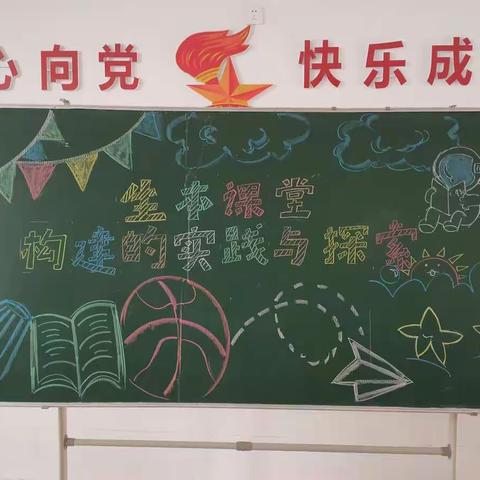 心向党 快乐成
生本课堂
构建的实践与探索